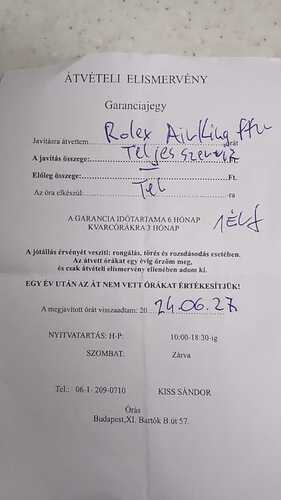 ÁTVÉTELI ELISMERVÉNY
Garanciajegy
Javításra átvettem Rolex Air King ffi órát
A javítás összege: Teljes szerviz Ft.
Előleg összege: Ft.
Az óra elkészül: Tel -ra
A GARANCIA IDŐTARTAMA 6 HÓNAP
KVARCÓRÁKRA 3 HÓNAP
1 ÉV
A jótállás érvényét veszíti: rongálás, törés és rozsdásodás esetében.
Az átvett órákat egy évig őrzöm meg,
és csak átvételi elismervény ellenében adom ki.
EGY ÉV UTÁN AZ ÁT NEM VETT ÓRÁKAT ÉRTÉKESÍTJÜK!
A megjavított órát visszaadtam: 20 24.06.27
NYITVATARTÁS: H-P: 10:00-18:30-ig
SZOMBAT: Zárva
Tel.: 06-1- 209-0710 KISS SÁNDOR
Órás
Budapest,XI. Bartók B.út 57.